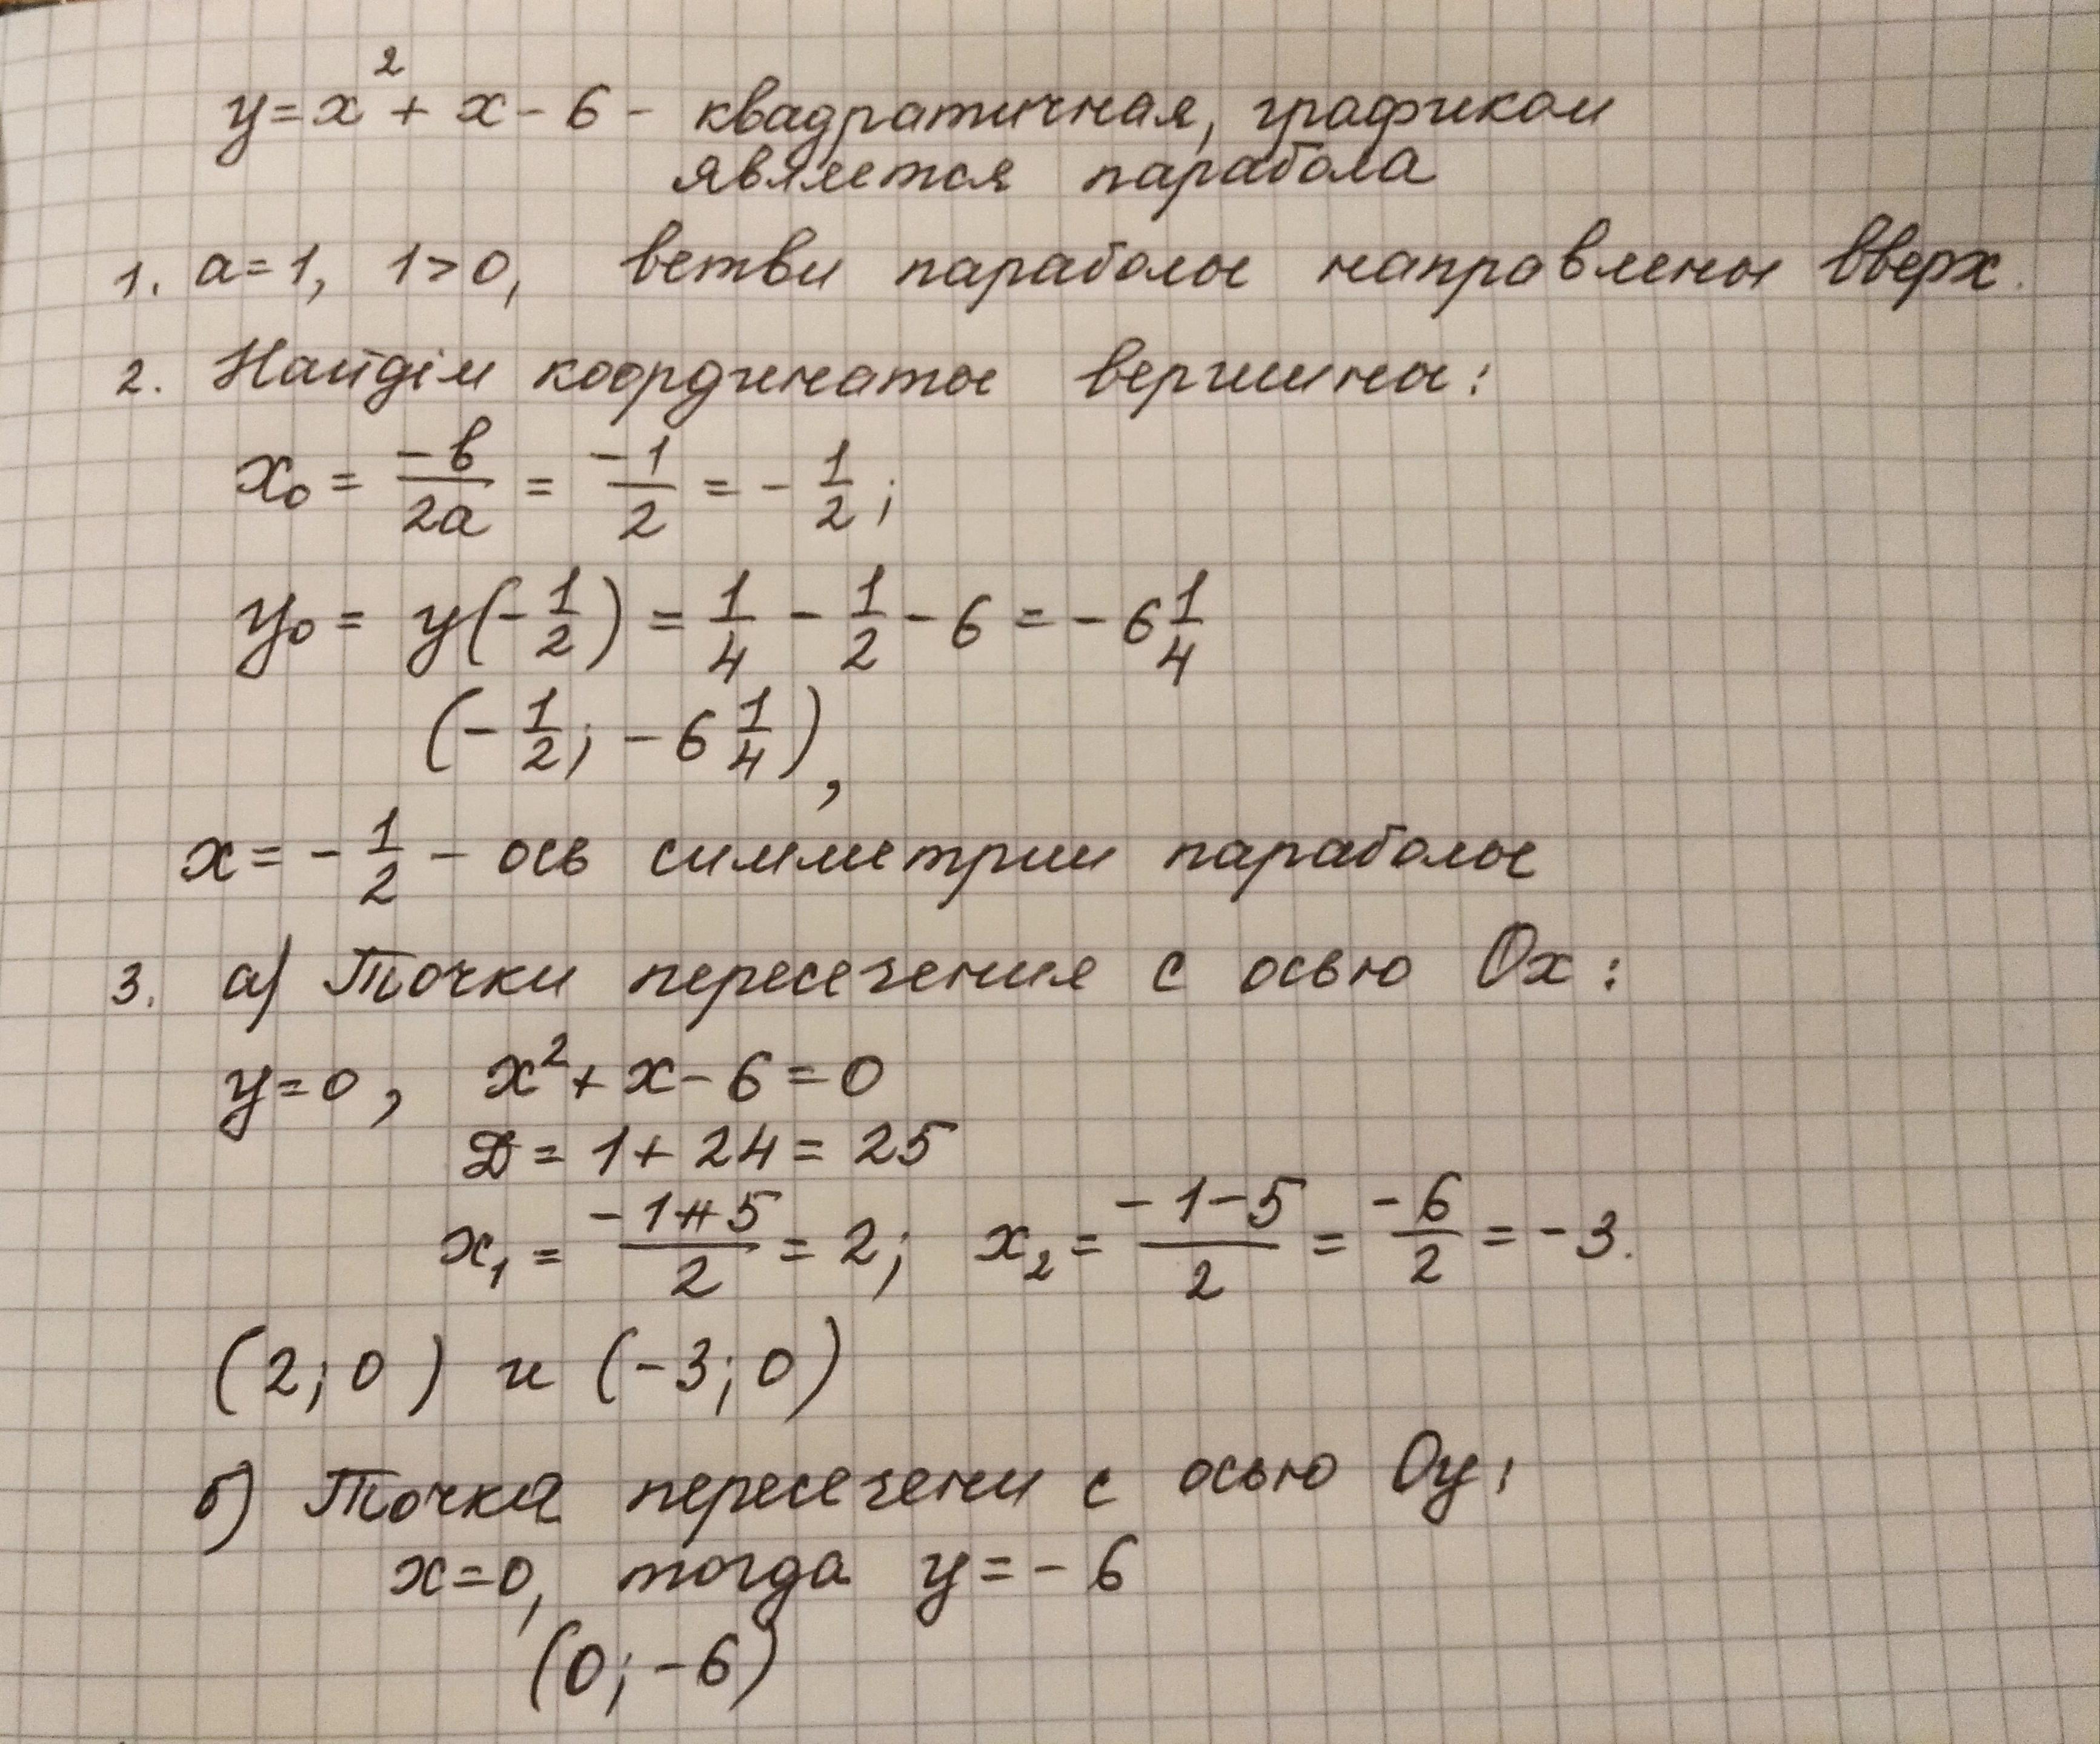 y = x² + x - 6 - квадратичная, графиком
является парабола
1. a = 1, 1 > 0, ветви параболы направлены вверх.
2. Найдём координаты вершины:
x₀ = -b/2a = -1/2 = - 1/2;
y₀ = y(-1/2) = 1/4 - 1/2 - 6 = -6 1/4
(-1/2; -6 1/4),
x = - 1/2 - ось симметрии параболы
3. а) Точки пересечения с осью Ox:
y = 0, x² + x - 6 = 0
D = 1 + 24 = 25
x₁ = -1+5/2 = 2; x₂ = -1-5/2 = -6/2 = -3.
(2; 0) и (-3; 0)
б) Точка пересечени с осью Oy:
x = 0, тогда y = -6
(0; -6)